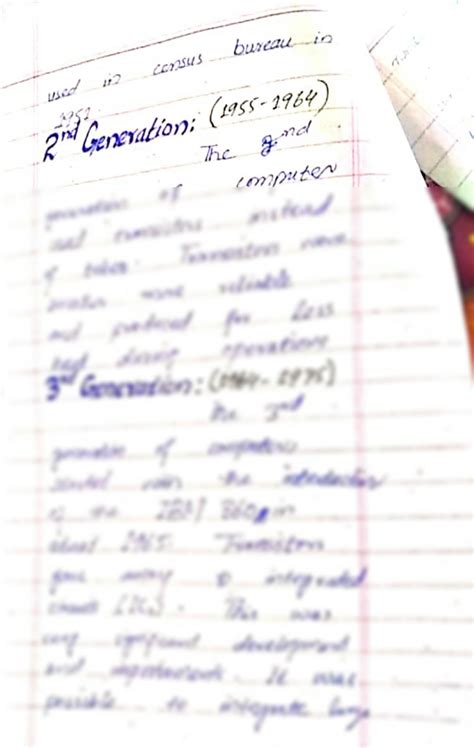 used in census bureau in
1951.
2nd Generation: (1955-1964)
The 2nd
computer
generation of
used transistors instead
of tubes. Transistors were
smaller more reliable
and produced far less
heat during operations
3rd Generation: (1964-1975)
the 3rd
generation of computers
started with the introduction
of the IBM 360 in
1965. Transistors
gave away to integrated
circuits
This was
very significant development
and improvement. It was
possible to integrate large